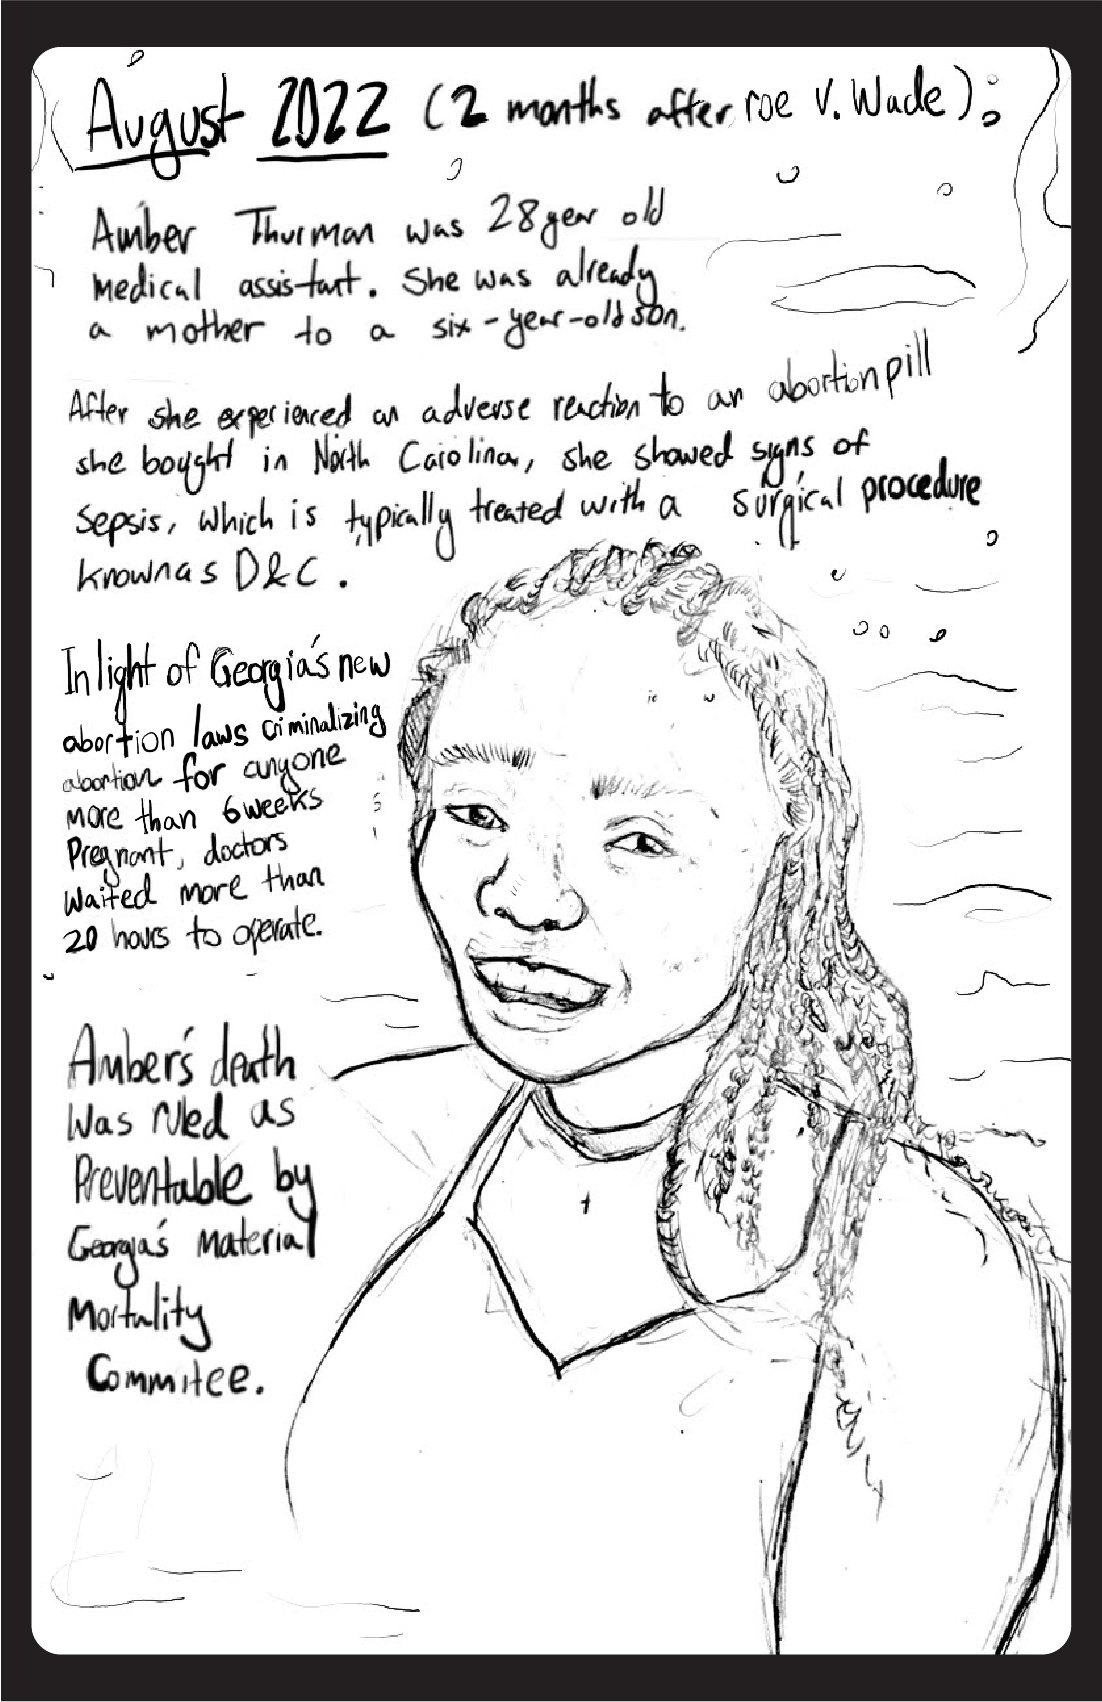 August 2022 (2 months after roe v. Wade):
Amber Thurman was 28 year old
medical assistant. She was already
a mother to a six-year-old son.
After she experienced an adverse reaction to an abortion pill
she bought in North Carolina, she showed signs of
sepsis, which is typically treated with a surgical procedure
known as D&C.
In light of Georgia's new
abortion laws criminalizing
abortion for anyone
more than 6 weeks
Pregnant, doctors
waited more than
20 hours to operate.
Amber's death
was ruled as
Preventable by
Georgia's Material
Mortality
Commitee.